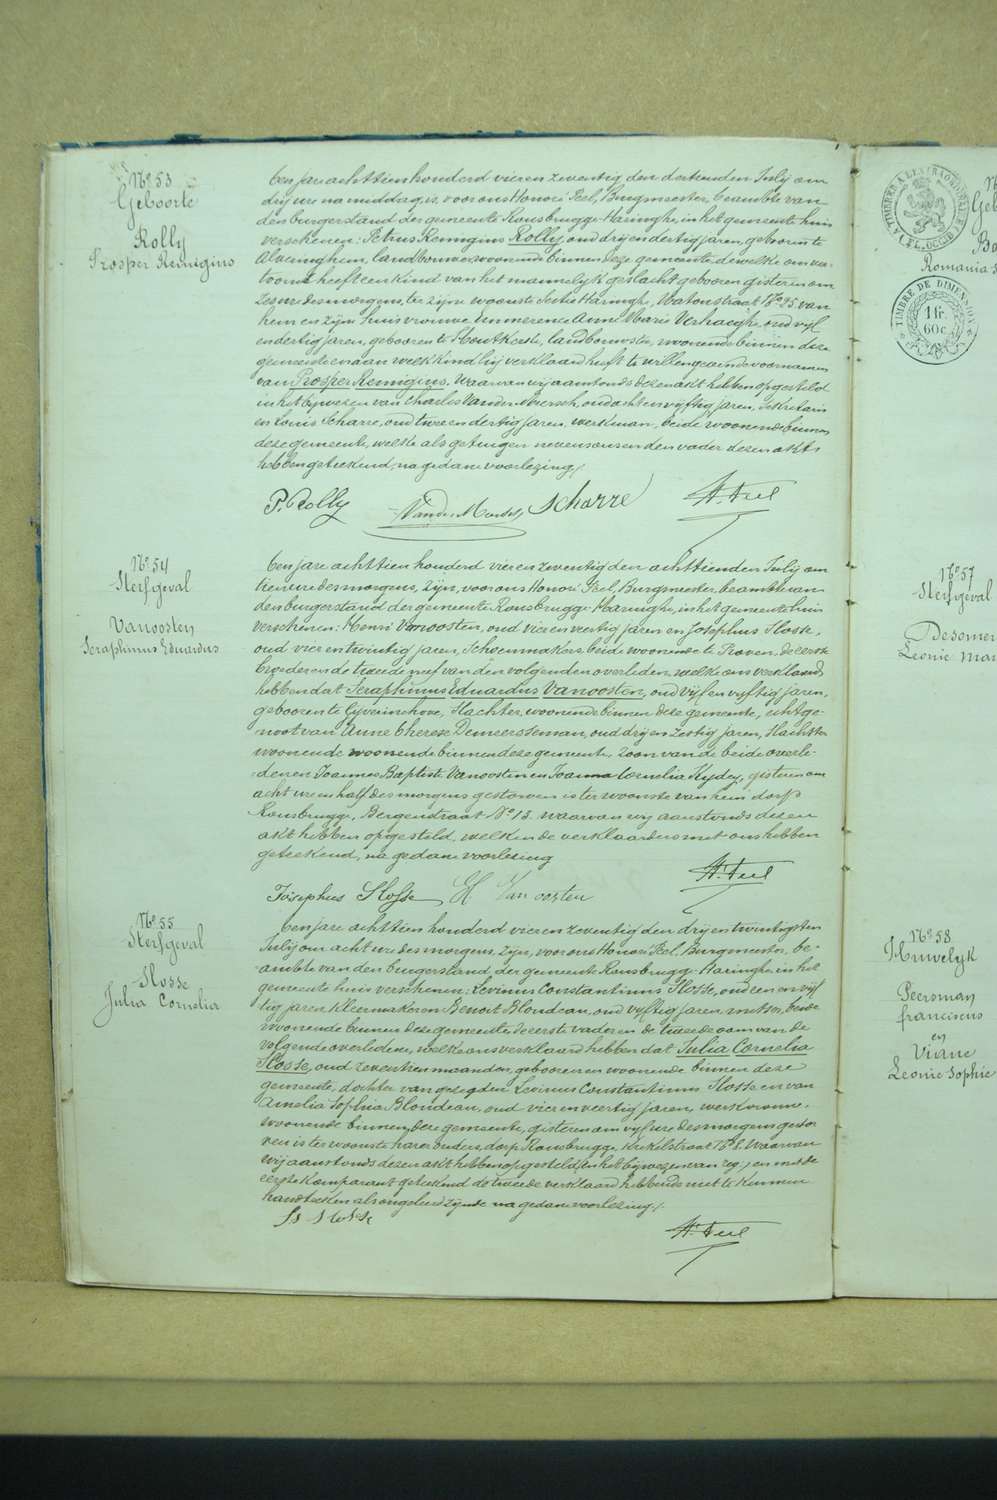 Nº 53
Geboorte
Rolly
Prosper Remigius
Den jare achttien honderd vier en zeventig den dertienden July om
drij ure na middag, is voor ons Honoré Feel, Burgmeester, beambte van
den burgerstand der gemeente Rousbrugge-Haringhe, in het gemeente huis
verschenen: Petrus Remigius Rolly, oud drij en dertig jaren, geboren te
Alveringhem, landbouwer, woonende binnen deze gemeente dewelke ons ver-
toond heeft een kind van het mannelyk geslacht geboren gisteren om
zes ure des morgens, ter zijne woonste Sectie Haringhe, Watoustraat Nº 25. van
hem en zijne huisvrouwe Emmerence Anne Marie Verhaeghe, oud vijf
en dertig jaren, geboren te Houtkerke, landbouwster, woonende binnen deze
gemeente en aan welk kind hij verklaard heeft te willen geven de voornamen
van Prosper Remigius. Waarvan wij aanstonds dezen akt hebben opgesteld
in het bijwezen van Charles Vander Meersch, oud acht en vyftig jaren, sekretaris
en Louis Scharre, oud twee en dertig jaren, werkman, beide woonende binnen
deze gemeente, welke als getuigen nevens ons en den vader dezen akt
hebben geteekend, na gedane voorlezing.
P. Rolly Scharre H. Feel
Nº 54
Sterfgeval
Vanoosten
Seraphinus Eduardus
Den jare achttien honderd vier en zeventig den achttienden July om
tien ure des morgens, zijn, voor ons Honoré Feel, Burgmeester, beambte van
den burgerstand der gemeente Rousbrugge-Haringhe, in het gemeente huis
verschenen: Henri Vanoosten, oud vier en veertig jaren en Josephus Slosse,
oud vier en twintig jaren, Schoenmakers beide woonende te Proven, de eerste
broeder en de tweede neef van den volgenden overleden, welke ons verklaard
hebben dat Seraphinus Eduardus Vanoosten, oud vijf en vyftig jaren,
geboren te Gyverinchove, Slachter, woonende binnen deze gemeente, echtge-
noot van Anne Therese Demeersseman, oud drij en zestig jaren, Slachtster
woonende woonende binnen deze gemeente, zoon van de beide overle-
denen Joannes Baptiste Vanoosten en Joanna Cornelia Rydey, gisteren om
acht ure en half des morgens gestorven is ter woonste van hem dorp
Rousbrugge, Bergenstraat Nº 13. waarvan wy aanstonds dezen
akt hebben opgesteld, welken de verklaarders met ons hebben
geteekend, na gedane voorlezing
H. Feel
Josephus Slosse H Vanoosten
Nº 55
Sterfgeval
Slosse
Julia Cornelia
Den jare achttien honderd vier en zeventig den drij en twintigsten
July om acht ure des morgens, zijn, voor ons Honoré Feel, Burgmeester, be-
ambte van den burgerstand, der gemeente Rousbrugge-Haringhe, in het
gemeente huis verschenen: Levinus Constantinus Slosse, oud een en vijf
tig jaren Kleermaker en Benoit Blondeau, oud vyftig jaren, metser, beide
woonende binnen deze gemeente de eerste vader en de tweede oom van de
volgende overledene, welke ons verklaard hebben dat Julia Cornelia
Slosse, oud zeventien maanden, geboren en woonende binnen deze
gemeente, dochter van gezegden Levinus Constantinus Slosse en van
Amelia Sophia Blondeau, oud vier en veertig jaren, werkvrouw,
woonende binnen deze gemeente, gisteren om vijf ure des morgens gestor
ven is ter woonste harer ouders, dorp Rousbrugge, Krekelstraat Nº 8. Waarvan
wij aanstonds dezen akt hebben opgesteld, en met de
eerste komparant geteekend, de tweede verklaard hebbende niet te kunnen
handteeken als ongeleerd zijnde na gedane voorlezing.
Ls Slosse
H. Feel
TIMBRE DE DIMENSION
1 fr.
60 c.
Romania
Nº 57
Sterfgeval
Desomer
Leonie Mar
Nº 58
Huwelyk
Peersman
franciscus
en
Viane
Leonie Sophie